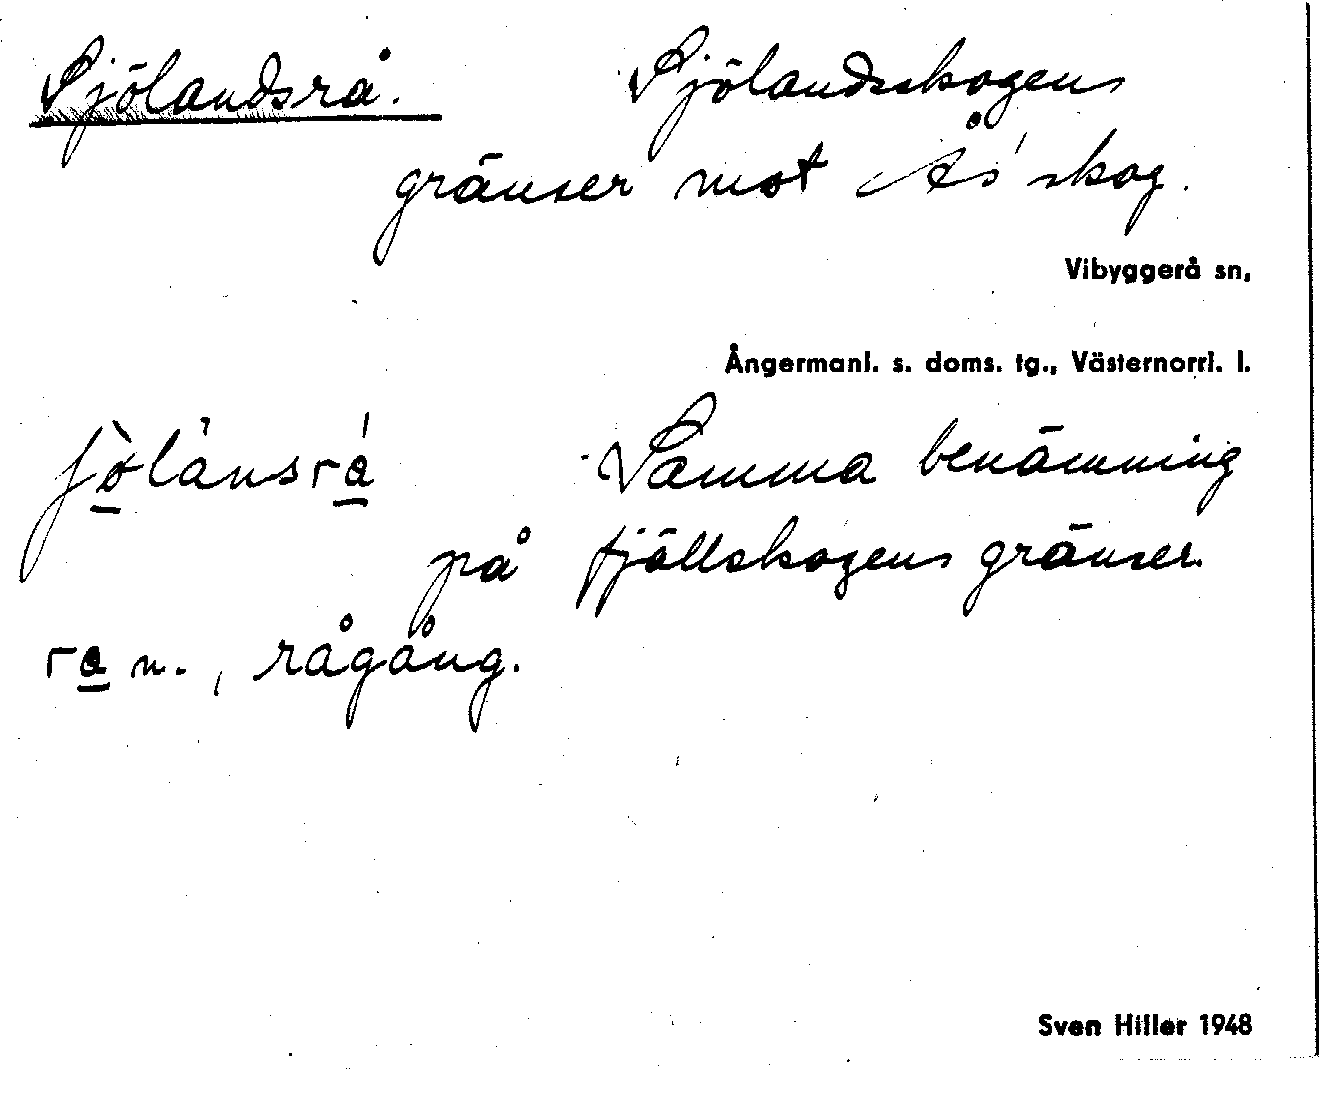 Sjölandsrå. Sjölandsskogens
gränser mot Ås' skog.
Vibyggerå sn,
Ångermanl. s. doms. tg., Västernorrl. l.
Samma benämning
på fjällskogens gränser.
ra n., rågång.
Sven Hiller 1948